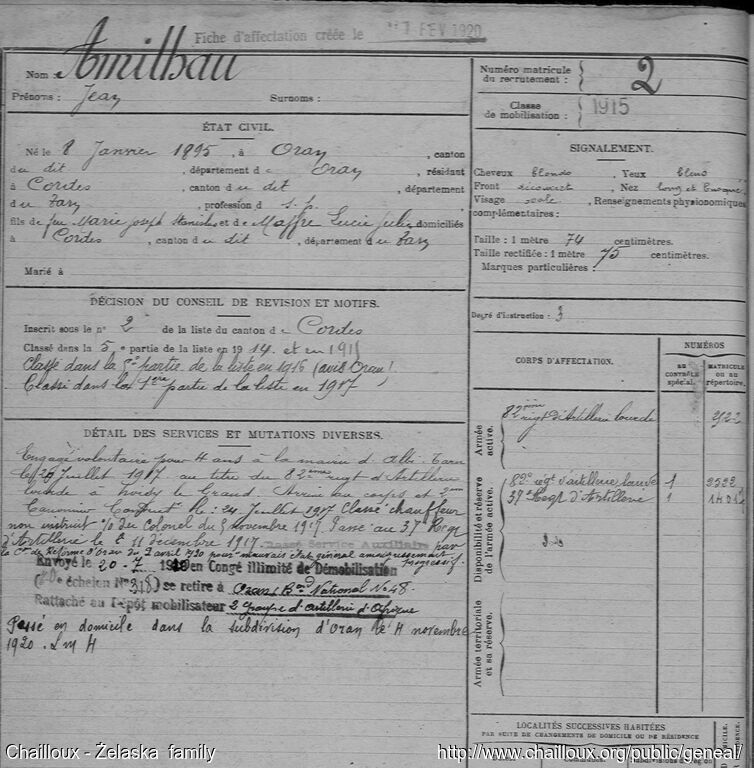 Fiche d'affectation créée le 7 FEV 1920
Nom : Amilhau
Prénoms : Jean Surnoms :
ÉTAT CIVIL.
Né le 8 Janvier 1895, à Oran, canton
du dit, département d Oran, résidant
à Cordes, canton du dit, département
du Tarn, profession d s. p.
fils de feu Marie Joseph Stanislas et de Maffre Lucie Julie domiciliés
à Cordes, canton du dit, département du Tarn
Marié à
DÉCISION DU CONSEIL DE REVISION ET MOTIFS.
Inscrit sous le n° 2 de la liste du canton de Cordes
Classé dans la 5e partie de la liste en 1914 et en 1915
Classé dans la 5e partie de la liste en 1916 (avis Oran)
Classé dans la 1ère partie de la liste en 1917
DÉTAIL DES SERVICES ET MUTATIONS DIVERSES.
Engagé volontaire pour 4 ans à la mairie d'Albi Tarn
le 20 Juillet 1917 au titre du 82ème régt d'Artillerie
lourde à Noisy le Grand. Arrivé au corps et 2ème
Canonnier Conduct le : 24 Juillet 1917 Classé chauffeur
non instruit % du Colonel du 5 novembre 1917 Passé au 37e Regt
d'Artillerie le 11 décembre 1917. Classé Service Auxiliaire par
la Con de Réforme d'Oran du 2 avril 1920 pour mauvais état général amaigrissement
progressif.
Envoyé le 20-7 1920 en Congé illimité de Démobilisation
( échelon N° 318) se retire à Oran, Bard National No 48.
Rattaché au Dépôt mobilisateur 2 groupe d'artillerie d'Afrique
Passé en domicile dans la subdivision d'Oran le 4 novembre
1920. L M H
Numéro matricule
du recrutement : 2
Classe
de mobilisation : 1915
SIGNALEMENT.
Cheveux blonds, Yeux bleus
Front découvert, Nez long et busqué
Visage ovale, Renseignements physionomiques
complémentaires :
Taille : 1 mètre 74 centimètres.
Taille rectifiée : 1 mètre 75 centimètres.
Marques particulières :
Degré d'instruction : 3
CORPS D'AFFECTATION.
NUMÉROS
AU CONTRÔLE spécial.
MATRICULE OU AU répertoire.
Armée active.
82ème régt d'Artillerie lourde
Disponibilité et réserve de l'armée active.
82e regt d'artillerie lourde 1 2322
37e Regt d'Artillerie 1
Armée territoriale et sa réserve.
LOCALITÉS SUCCESSIVES HABITÉES
PAR SUITE DE CHANGEMENTS DE DOMICILE OU DE RÉSIDENCE
Chailloux - Żelaska family
http://www.chailloux.org/public/geneal/